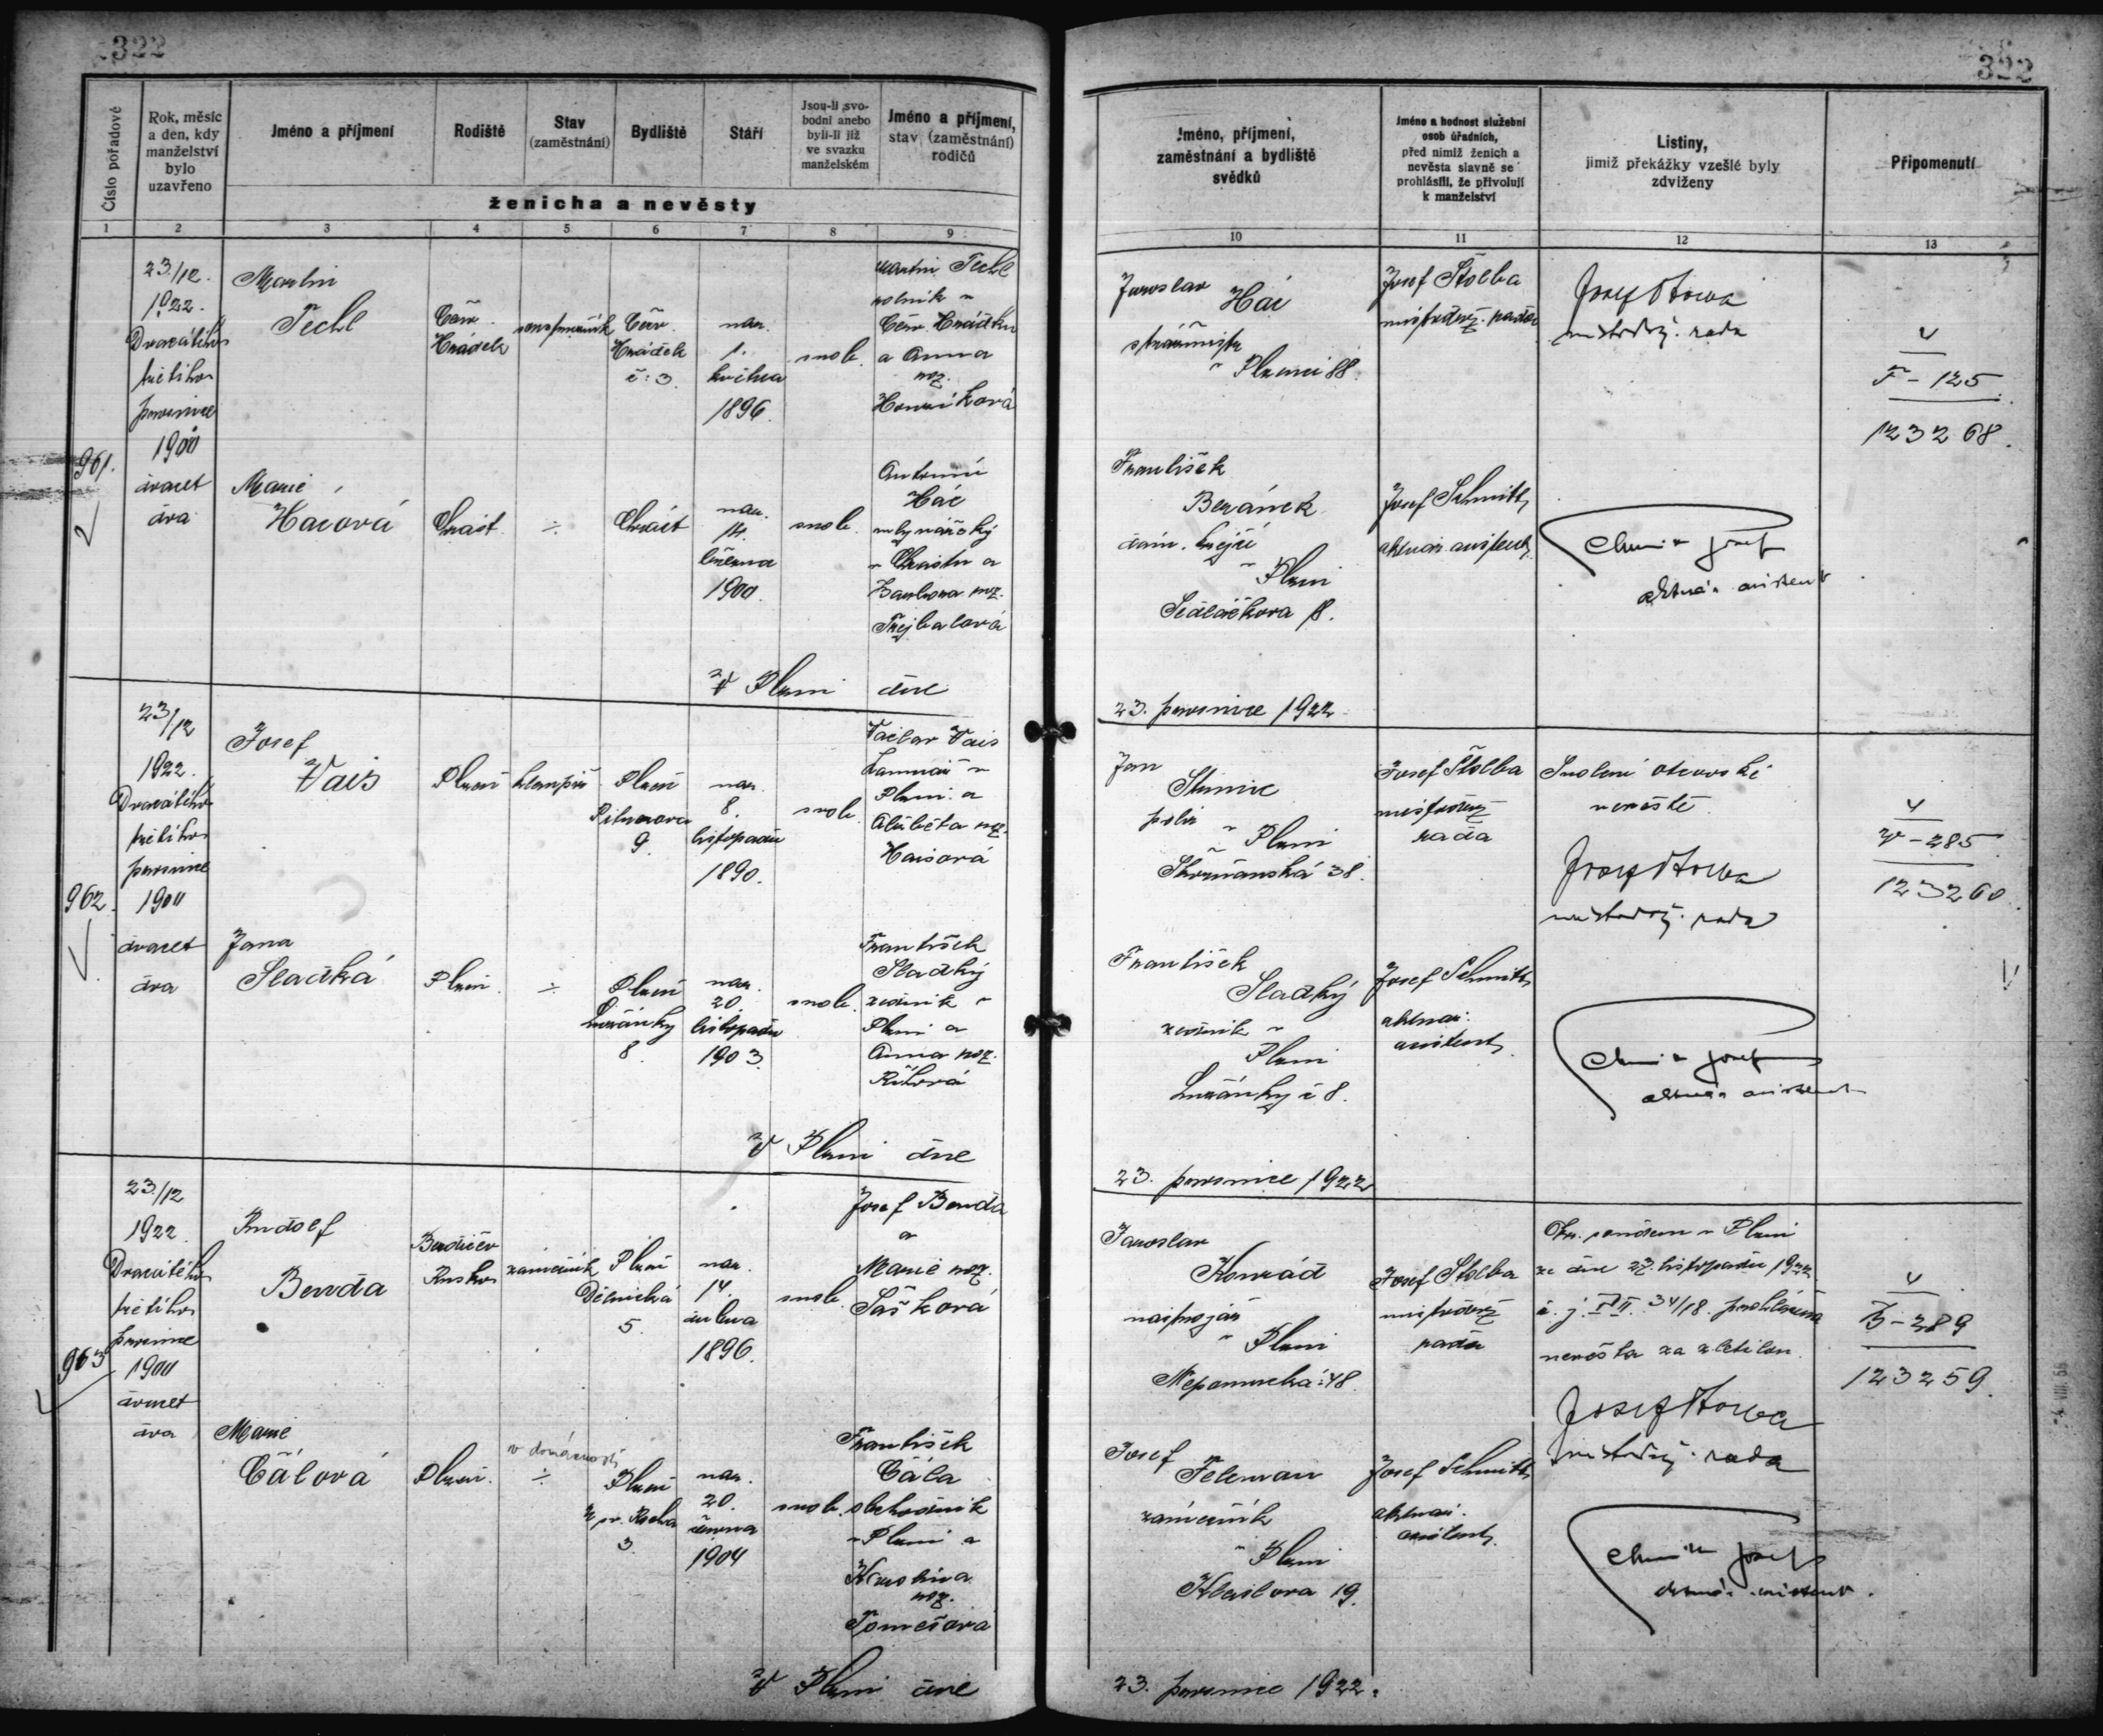 322
Číslo pořadové
Rok, měsíc
a den, kdy
manželství
bylo
uzavřeno
Jméno a příjmení
Rodiště
Stav
(zaměstnání)
Bydliště
Stáří
Jsou-li svo-
bodni anebo
byli-li již
ve svazku
manželském
Jméno a příjmení,
stav (zaměstnání)
rodičů
ženicha a nevěsty
1 2 3 4 5 6 7 8 9
961.
23./12.
1922.
Dvacátého
třetího
prosince
1900
dvacet
dva
Martin
Techl
Červ.
Hrádek
Červ.
Hrádek
č: 3.
nar.
1.
května
1896.
svob.
Martin Techl
rolník v
Červ. Hrádku
a Anna
roz.
Marie
Hacová
Chrást
÷
Chrást
nar.
14.
1900.
svob.
Antonín
Hác
v Chrástu a
Barbora roz.
Trejbalová
V Plzni dne
962.
23/12
1922.
Dvacátého
třetího
prosince
1900
dvacet
dva
Josef
Vais
Plzeň
klempíř
Plzeň
9
nar.
8.
listopadu
1890.
svob.
Václav Vais
v
Plzni a
Alžběta roz.
Haisová
Jana
Sladká
Plzeň
÷
Plzeň
Lužánky
8
nar.
20.
listopadu
1903.
svob.
František
Sladký
zedník v
Plzni a
Anna roz.
V Plzni dne
963
23./12
1922.
Dvacátého
třetího
prosince
1900
dvacet
dva
Rudolf
Benda
Berdičev
Rusko
zámečník
Plzeň
Dělnická
5.
nar.
14.
dubna
1896.
svob.
Josef Benda
a
Marie roz.
Šašková
Marie
Cálová
Plzeň.
v domácnosti
÷
Plzeň
U sv. Rocha
3.
nar.
20.
června
1904
svob.
František
Cála
obchodník
v Plzni a
roz.
Tomešová
V Plzni dne
322
Jméno, příjmení,
zaměstnání a bydliště
svědků
Jméno a hodnost služební
osob úřadních,
před nimiž ženich a
nevěsta slavně se
prohlásili, že přivolují
k manželství
Listiny,
jimiž překážky vzešlé byly
zdviženy
Připomenutí
10 11 12 13
Jaroslav
Hác
strážmistr
v Plzni 88.
Josef Štolba
místodrž. rada
Josef Štolba
místodrž. rada
F - 125
123268.
František
Beránek
v Plzni
Sedláčkova 18.
Josef Schmith
aktuár. assistent
23. prosince 1922
Jan
v Plzni
Skvrňanská 38.
Josef Štolba
místodrž.
rada
Svolení otcovské
nevěstě
Josef Štolba
místodrž. rada
V - 285
123260.
František
Sladký
zedník v
Plzni
Lužánky č 8.
Josef Schmith
aktuár.
assistent
23. prosince 1922
Jaroslav
Konrád
v Plzni
Nepomucká: 48.
Josef Štolba
místodrž.
rada
Okr. soudem v Plzni
ze dne 27. listopadu 1922
prohlášena
nevěsta za zletilou.
Josef Štolba
místodrž. rada
B - 289
123259.
Josef
Feleman
zámečník
v Plzni
Klatovská 19.
Josef Schmith
aktuár.
assistent
23. prosince 1922.